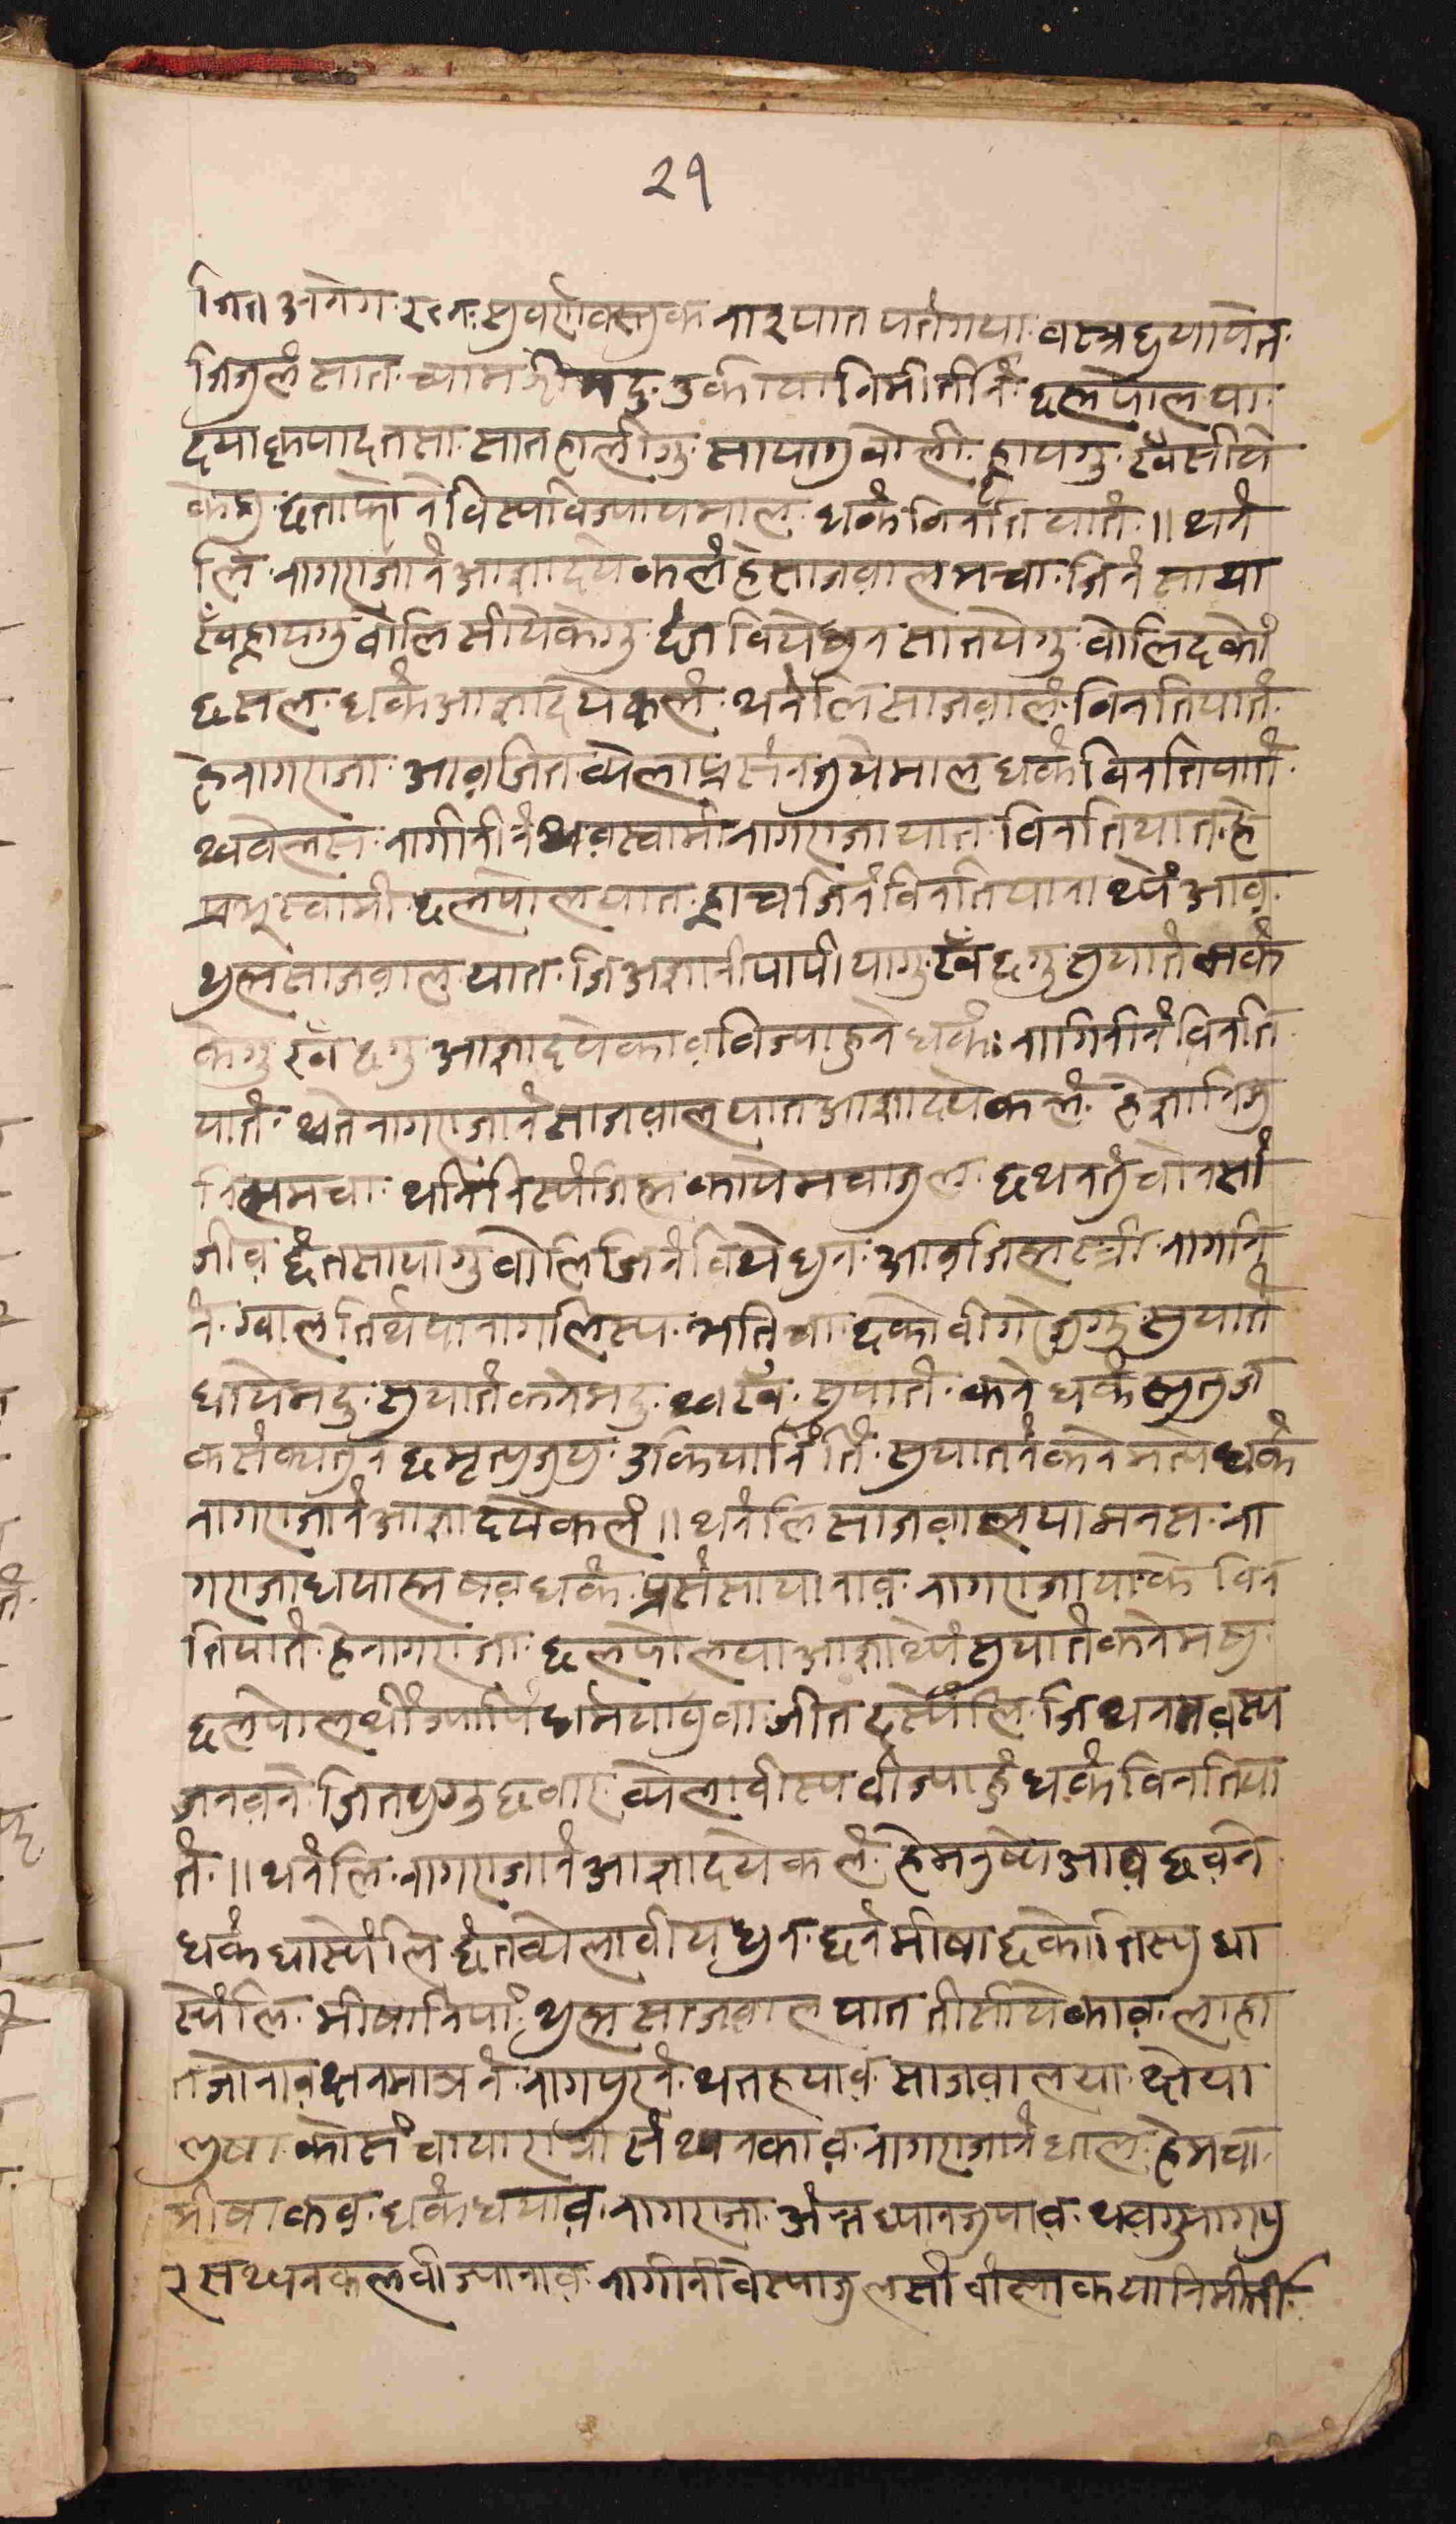 २१
जित॥ अनेग रत्न सुवर्णवस्तुक नाश्यात पतंगया वस्त्र छु यायेत
जिजुलं सात च्यामदु उकीया निमीतीनं छलपोल या
दयाकृपा दतसा सातहालीगु सायागु वोली ह्रायगु खँ सीये
केगु छताफोने विस्यविज्यायमाल धकं विनति यातं ॥ थनं
लि नागराजानं आज्ञादयेकलं हे साजवाल मचा जिनं साया
खँ ह्रायगु वोलि सीयेकेगु छंत वियेधुन सातयेगु वोलि दको
छ सल धकं आज्ञादयेकलं थनंलि साजवालं विनतियातं
हे नागराजा आव जित व्येला प्रसंन जुयेमाल धकं विनतियातं
थ्ववेलस नागीनीनं थव स्वामी नागराजायात विनतियात हे
प्रभुस्वामी छलपोलयात ह्राच जिनं विनतियाना थ्यें आव
थुह्म साजवाल यात जि अज्ञानी पापीयागु खँ छगु सुयातं मकं
केगु खँ छगु आज्ञादयेकाव विज्याहुने धकं नागिनीनं विनति
यातं थ्वते नागराजानं साजवालयात आज्ञादयेकलं हे ज्ञानि जु
निह्म मचा थनिंनिस्यं जिह्म कायेमचा जुल छ थनतुं चोनसां
जीव छंत सायागु वोलि जिनं वियेधुन आव जिह्म स्त्री नागनि
नं ग्वाल तिर्थया नागलिस्य मतिना दको वीगेजुगु सुयातं
धायेमदु सुयातं कनेमदु थ्व खँ सुयातं कने धकं मतुज
कसं क्यातुन छ मृत्युजुयु उकियानिंतिं सुयातनं कने मत्ये धकं
नागराजानं आज्ञादयेकलं ॥ थनंलि साजवालया मनस ना
गराजा धयाह्म षव धकं प्रसंसा यानाव नागराजायाके विन
तियातं हे नागराजा छलपोलया आज्ञाथ्यें सुयातं कनेमषु
छलपोलथीं ज्यापिं धर्मयावुवा जीत दस्येंलि जि थन मवस्य
जनवने जितथुगु छवार व्येलावीस्य वीज्याहुं धकं विनतिया
तं ॥ थनंलि नागराजानं आज्ञादयेकलं हे मनुष्ये आव छ वने
धकं धास्येंलि छंत व्येलावीय धुन छनं मीषा छको तिस्यु धा
स्येंलि मीषा तियां थुह्म साजवालयात तीसीयेकाव लाहा
त जोनाव क्षनमात्रनं नागपुरनं थतहयाव साजवालया क्षेया
लुषा कोसं चायारात्री सं थ्यनकाव नागराजानं धाल हेमचा
मीषा कव धकं धयाव नागराजा अंत्रध्यान जुयाव थवगु नागपु
र स थ्यनकल वीज्यानाव नागीनी वेस्या जुल सी वांलाक यानिमीतीं